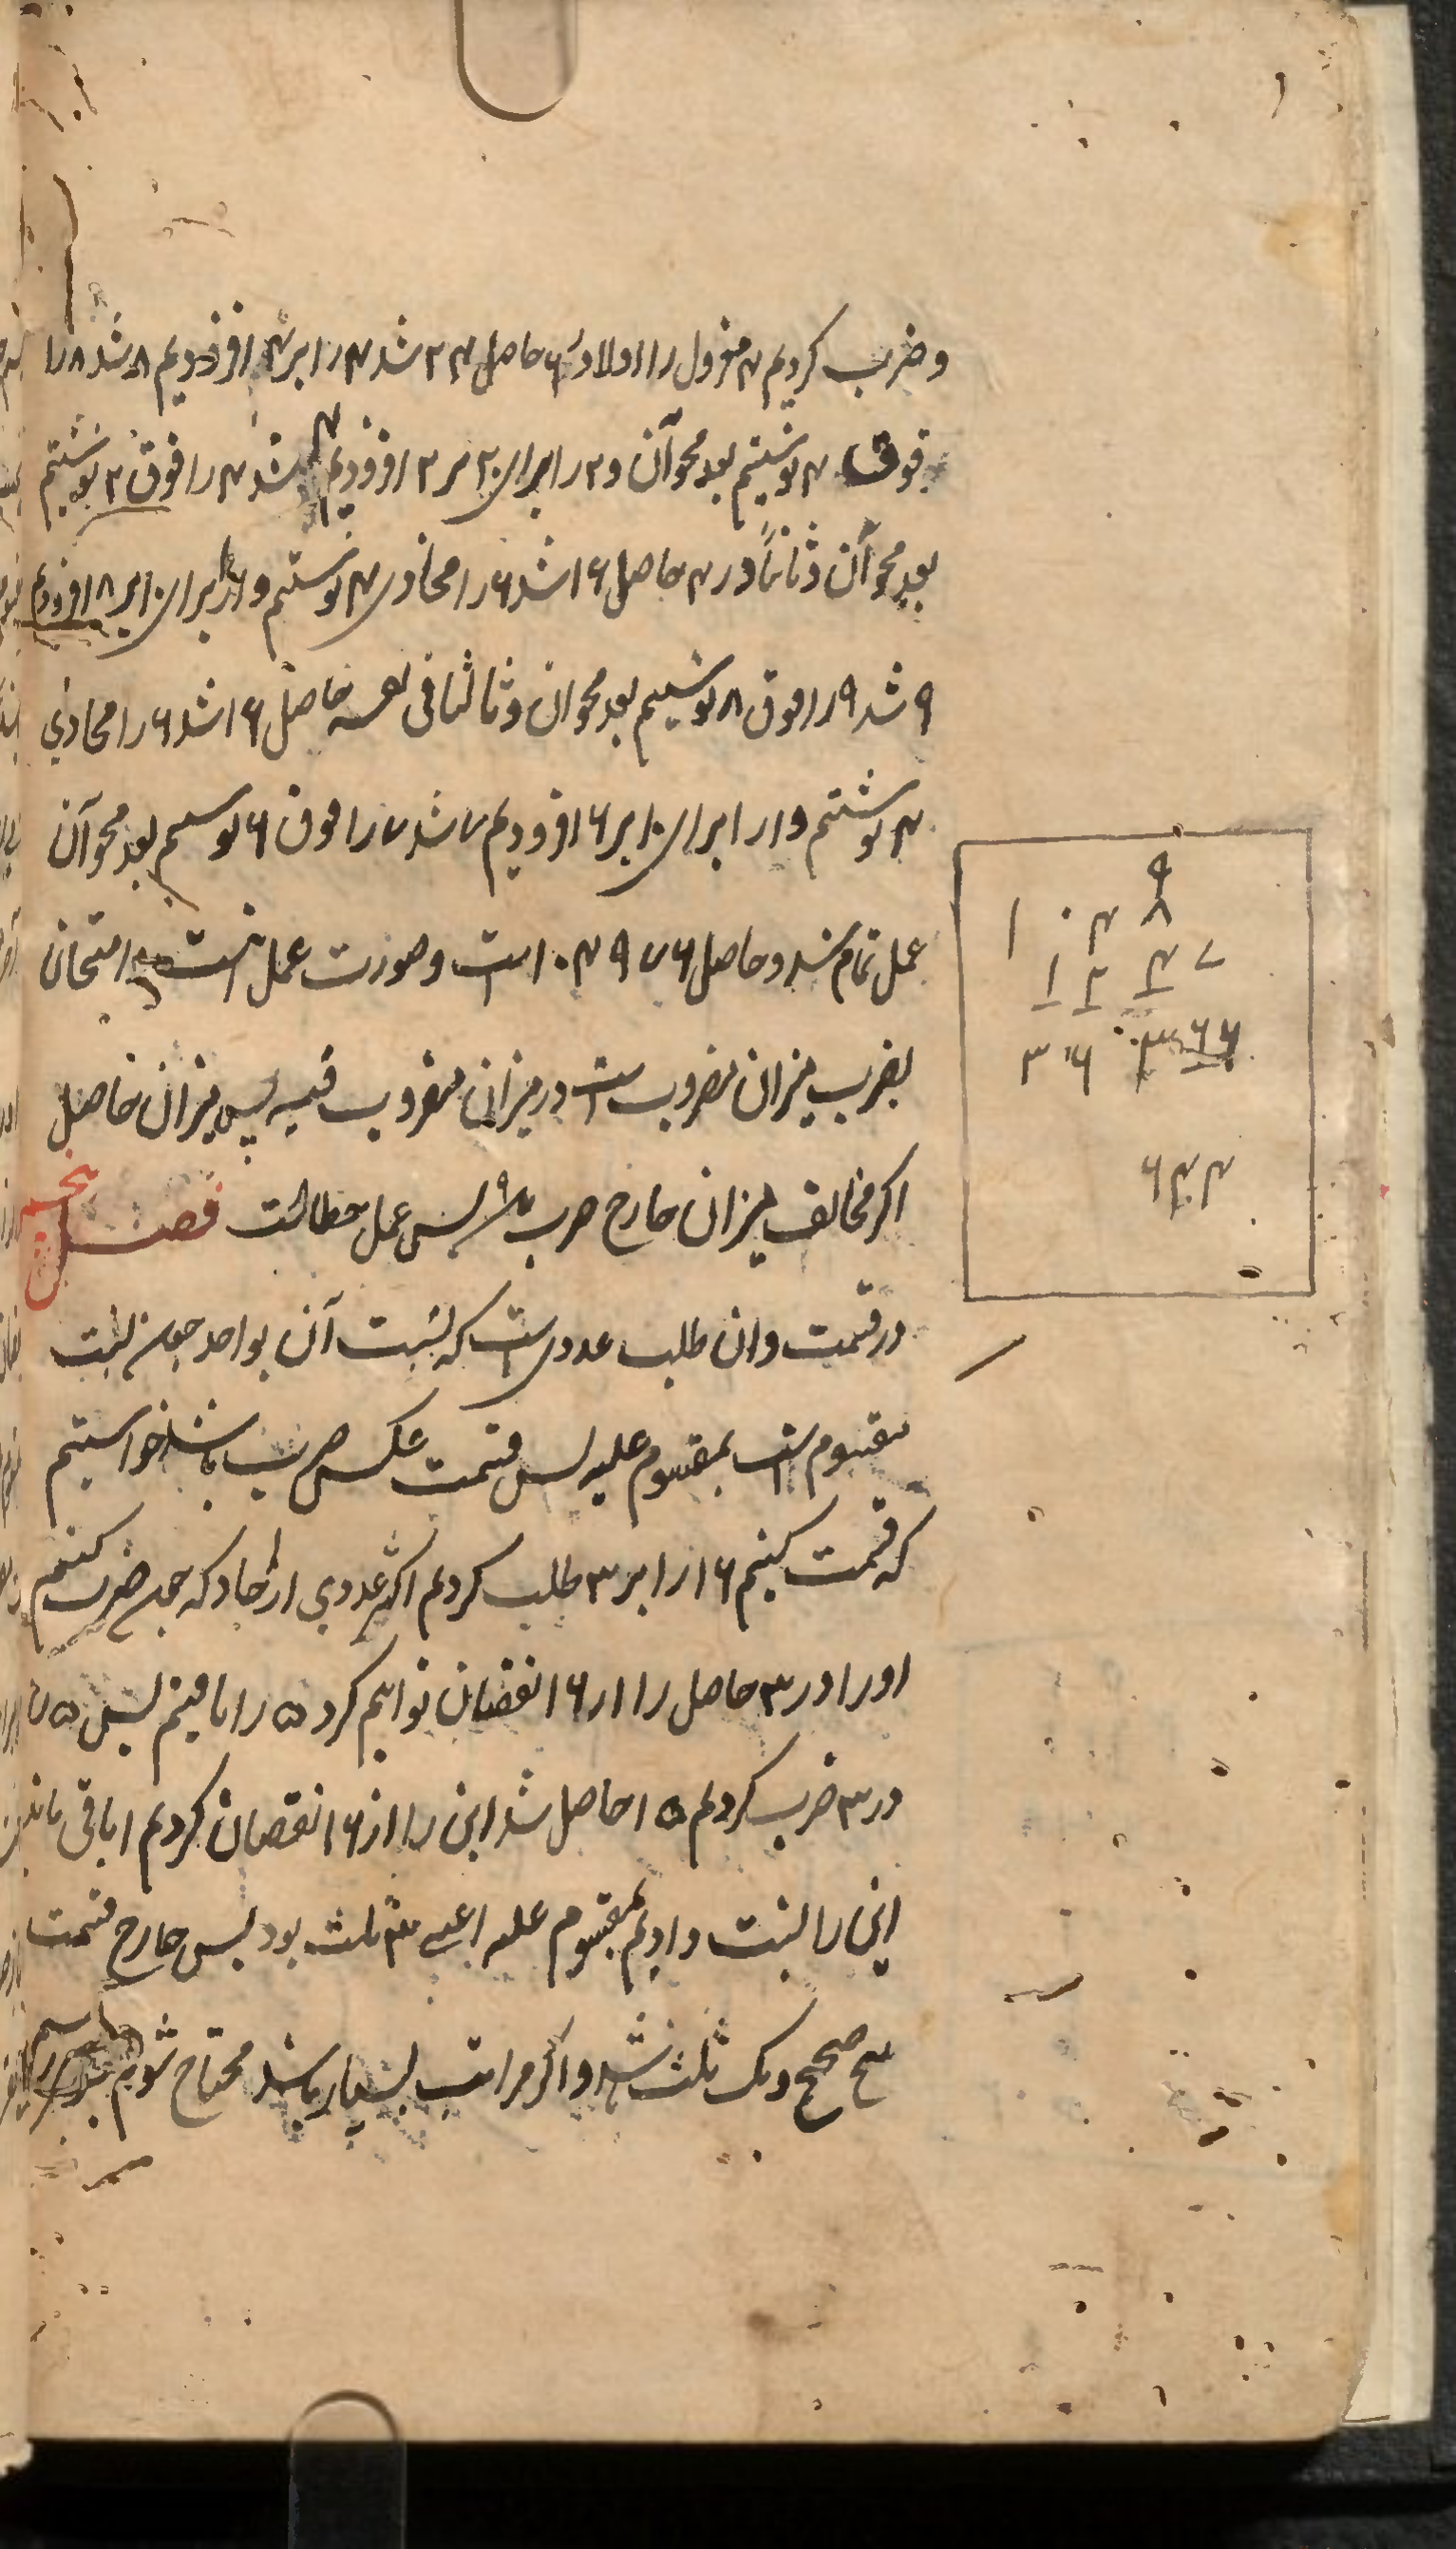 و ضرب کردیم ۴ معزول را اولا در ۶ حاصل ۲۴ شد ۴ را بر ۴ افزودیم ۸ شد ۸ را
فوق ۴ نوشتیم بعد محو آن و ۲ را برای ۲۰ بر ۲ افزودیم ۴ شد ۴ را فوق ۲ نوشتیم
بعد محو آن و ثانیاً در ۴ حاصل ۱۶ شد ۶ را محاذی ۴ نوشتیم و ۱ را برای ۱۰ بر ۸ افزودیم
۹ شد ۹ را فوق ۸ نوشتیم بعد محو ان و ثالثا فی نفسه حاصل ۱۶ شد ۶ را محاذي
۴ نوشتیم و ۱ را برای ۱۰ بر ۶ افزودیم ۷ شد ۷ را فوق ۶ نوشتیم بعد محو آن
عمل تمام شد و حاصل ۱۰۴۹۷۶ است و صورت عمل اینست امتحان
بضرب میزان مضروب است در میزان مضروب فیه پس میزان حاصل
اکر مخالف میزان خارج ضرب باشد پس عمل خطا است فصل پنجم
در قسمت وان طلب عددی است که نسبت آن بواحد چون نسبت
مقسوم است بمقسوم علیه پس قسمت عکس ضرب باشد خواستیم
که قسمت کنیم ۱۶ را بر ۳ طلب کردیم اکثر عددی از احاد که چون ضرب کنیم
او را در ۳ حاصل را از ۱۶ نقصان توانیم کرد ۵ را یافتیم پس ۵ را
در ۳ ضرب کردیم ۱۵ حاصل شد این را از ۱۶ نقصان کردیم ۱ باقی ماند
این را نسبت دادیم بمقسوم علیه اعنی ۳ ثلث بود پس خارج قسمت
پنج صحیح و یک ثلث شد و اکر مراتب بسیار باشد محتاج شویم
۹
۱ ۰ ۴ ۸
۱ ۲ ۴ ۷
۳ ۶ ۳ ۶ ۶
۶ ۴ ۴